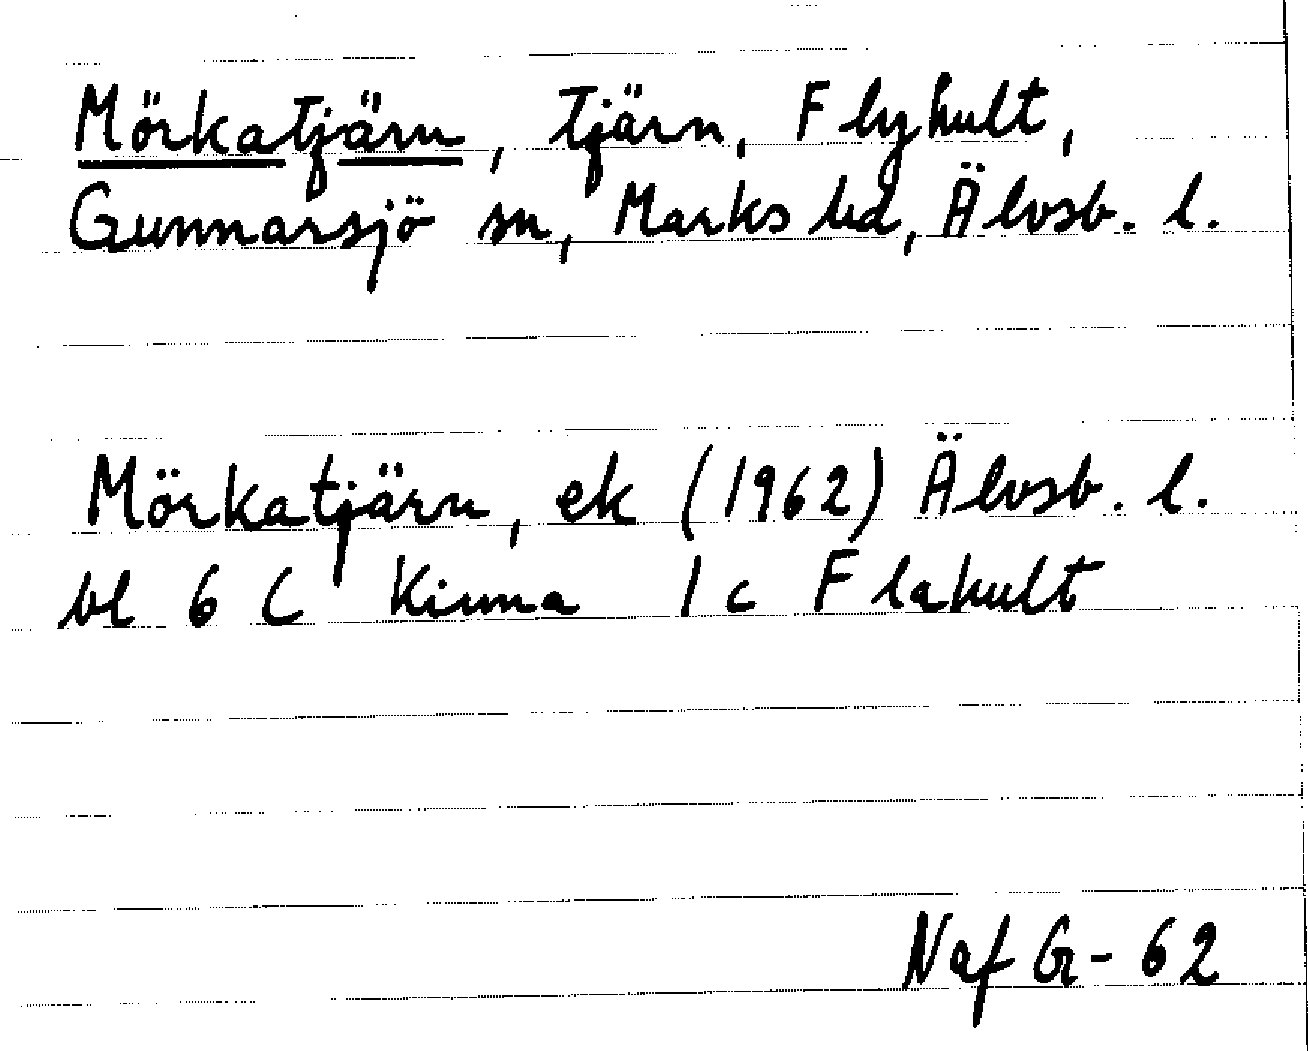 Mörkatjärn, tjärn, Flyhult,
Gunnarsjö sn, Marks hd, Älvsb. l.
Mörkatjärn, ek (1962) Älvsb. l.
bl 6 C Kinna 1 c Flahult
Naf G- 62